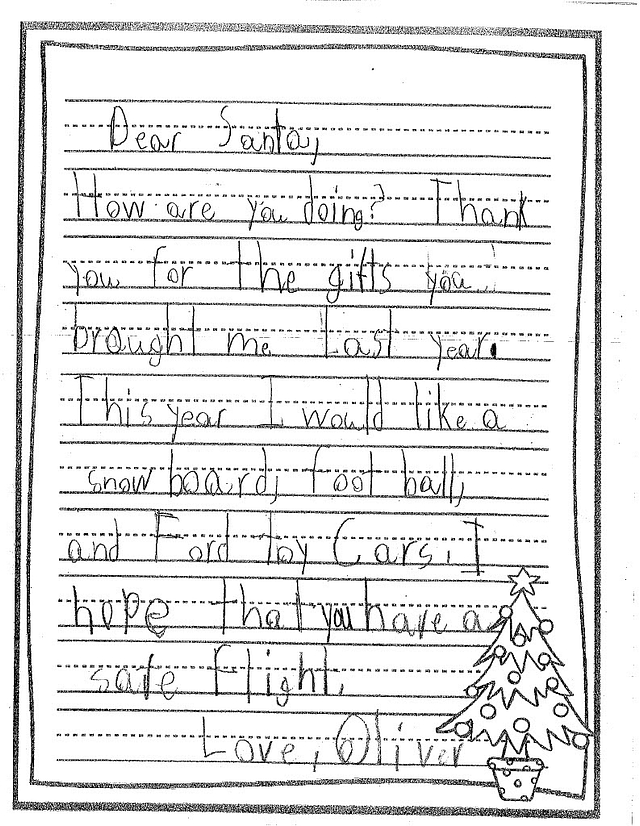 Dear Santa,
How are you doing? Thank
you for the gifts you
brought me Last year.
This year I would like a
snow board, foot ball,
and Ford Toy Cars. I
hope that you have a
safe Flight.
Love, Oliver